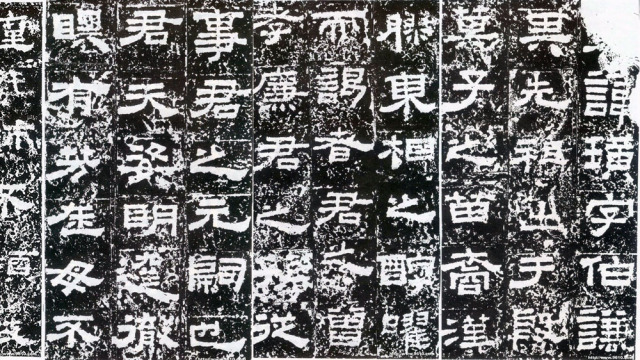 諱璜字伯謙
其先祖出于殷
箕子之苗裔漢
膠東相之醇曜
而謁者君之曾
孝廉君之孫從
事君之元嗣也
君天姿明達徹
聰有芳隹母不